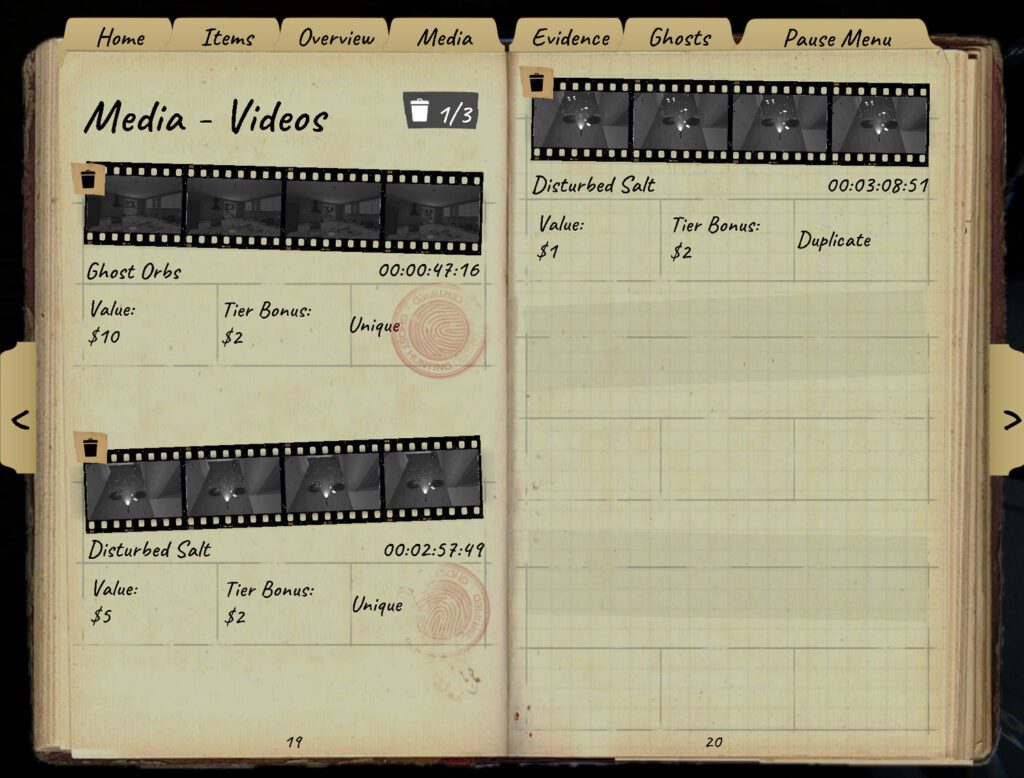 Home Items Overview Media Evidence Ghosts Pause Menu
Media - Videos 1/3
Ghost Orbs 00:00:47:16
Value: Tier Bonus: Unique
$10 $2
CERTIFIED GHOST HUNTING
Disturbed Salt 00:02:57:49
Value: Tier Bonus: Unique
$5 $2
GHOST
19
Disturbed Salt 00:03:08:51
Value: Tier Bonus: Duplicate
$1 $2
20
< >